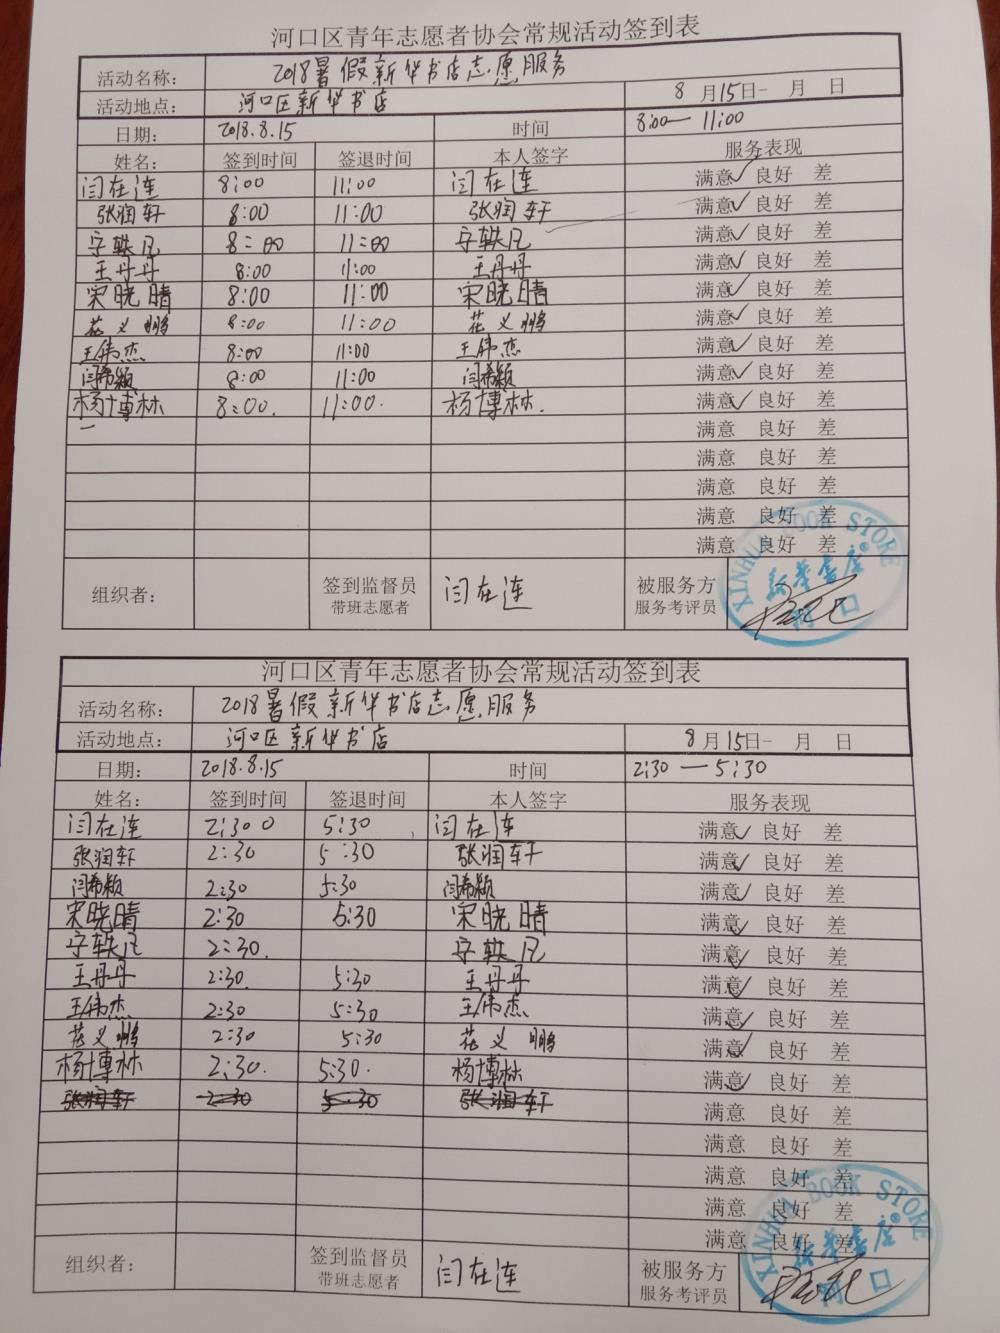 河口区青年志愿者协会常规活动签到表
活动名称： 2018暑假新华书店志愿服务
活动地点： 河口区新华书店 8月15日- 月 日
日期： 2018.8.15 时间 8:00— 11:00
姓名： 签到时间 签退时间 本人签字 服务表现
闫在连 8:00 11:00 闫在连 满意✓ 良好 差
张润轩 8:00 11:00 张润轩 满意✓ 良好 差
轶凡 8:00 11:00 轶凡 满意✓ 良好 差
王丹丹 8:00 11:00 王丹丹 满意✓ 良好 差
宋晓晴 8:00 11:00 宋晓晴 满意✓ 良好 差
花义鹏 8:00 11:00 花义鹏 满意✓ 良好 差
王伟杰 8:00 11:00 王伟杰 满意✓ 良好 差
闫希颖 8:00 11:00 闫希颖 满意✓ 良好 差
杨博林 8:00. 11:00. 杨博林. 满意✓ 良好 差
满意 良好 差
满意 良好 差
满意 良好 差
满意 良好 差
满意 良好 差
组织者： 签到监督员 闫在连 被服务方
带班志愿者 服务考评员
XINHUA BOOK STORE
新华书店®
河口
河口区青年志愿者协会常规活动签到表
活动名称： 2018暑假新华书店志愿服务
活动地点： 河口区新华书店 8月15日- 月 日
日期： 2018.8.15 时间 2:30 — 5:30
姓名： 签到时间 签退时间 本人签字 服务表现
闫在连 2:300 5:30 闫在连 满意✓ 良好 差
张润轩 2:30 5:30 张润轩 满意✓ 良好 差
闫希颖 2:30 5:30 闫希颖 满意✓ 良好 差
宋晓晴 2:30 5:30 宋晓晴 满意✓ 良好 差
轶凡 2:30. 轶凡 满意✓ 良好 差
王丹丹 2:30. 5:30 王丹丹 满意✓ 良好 差
王伟杰 2:30 5:30 王伟杰 满意✓ 良好 差
花义鹏 2:30 5:30 花义鹏 满意✓ 良好 差
杨博林 2:30. 5:30. 杨博林 满意✓ 良好 差
张润轩 2:30 5:30 张润轩 满意 良好 差
满意 良好 差
满意 良好 差
满意 良好 差
满意 良好 差
组织者： 签到监督员 闫在连 被服务方
带班志愿者 服务考评员
XINHUA BOOK STORE
新华书店®
河口